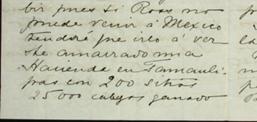 bir pues si Rosas no
puede venir á Mexico
tendré que irlo á ver
he amarrado una
Hacienda en Tamauli-
pas con 200 sitios
25000 cabezas ganado